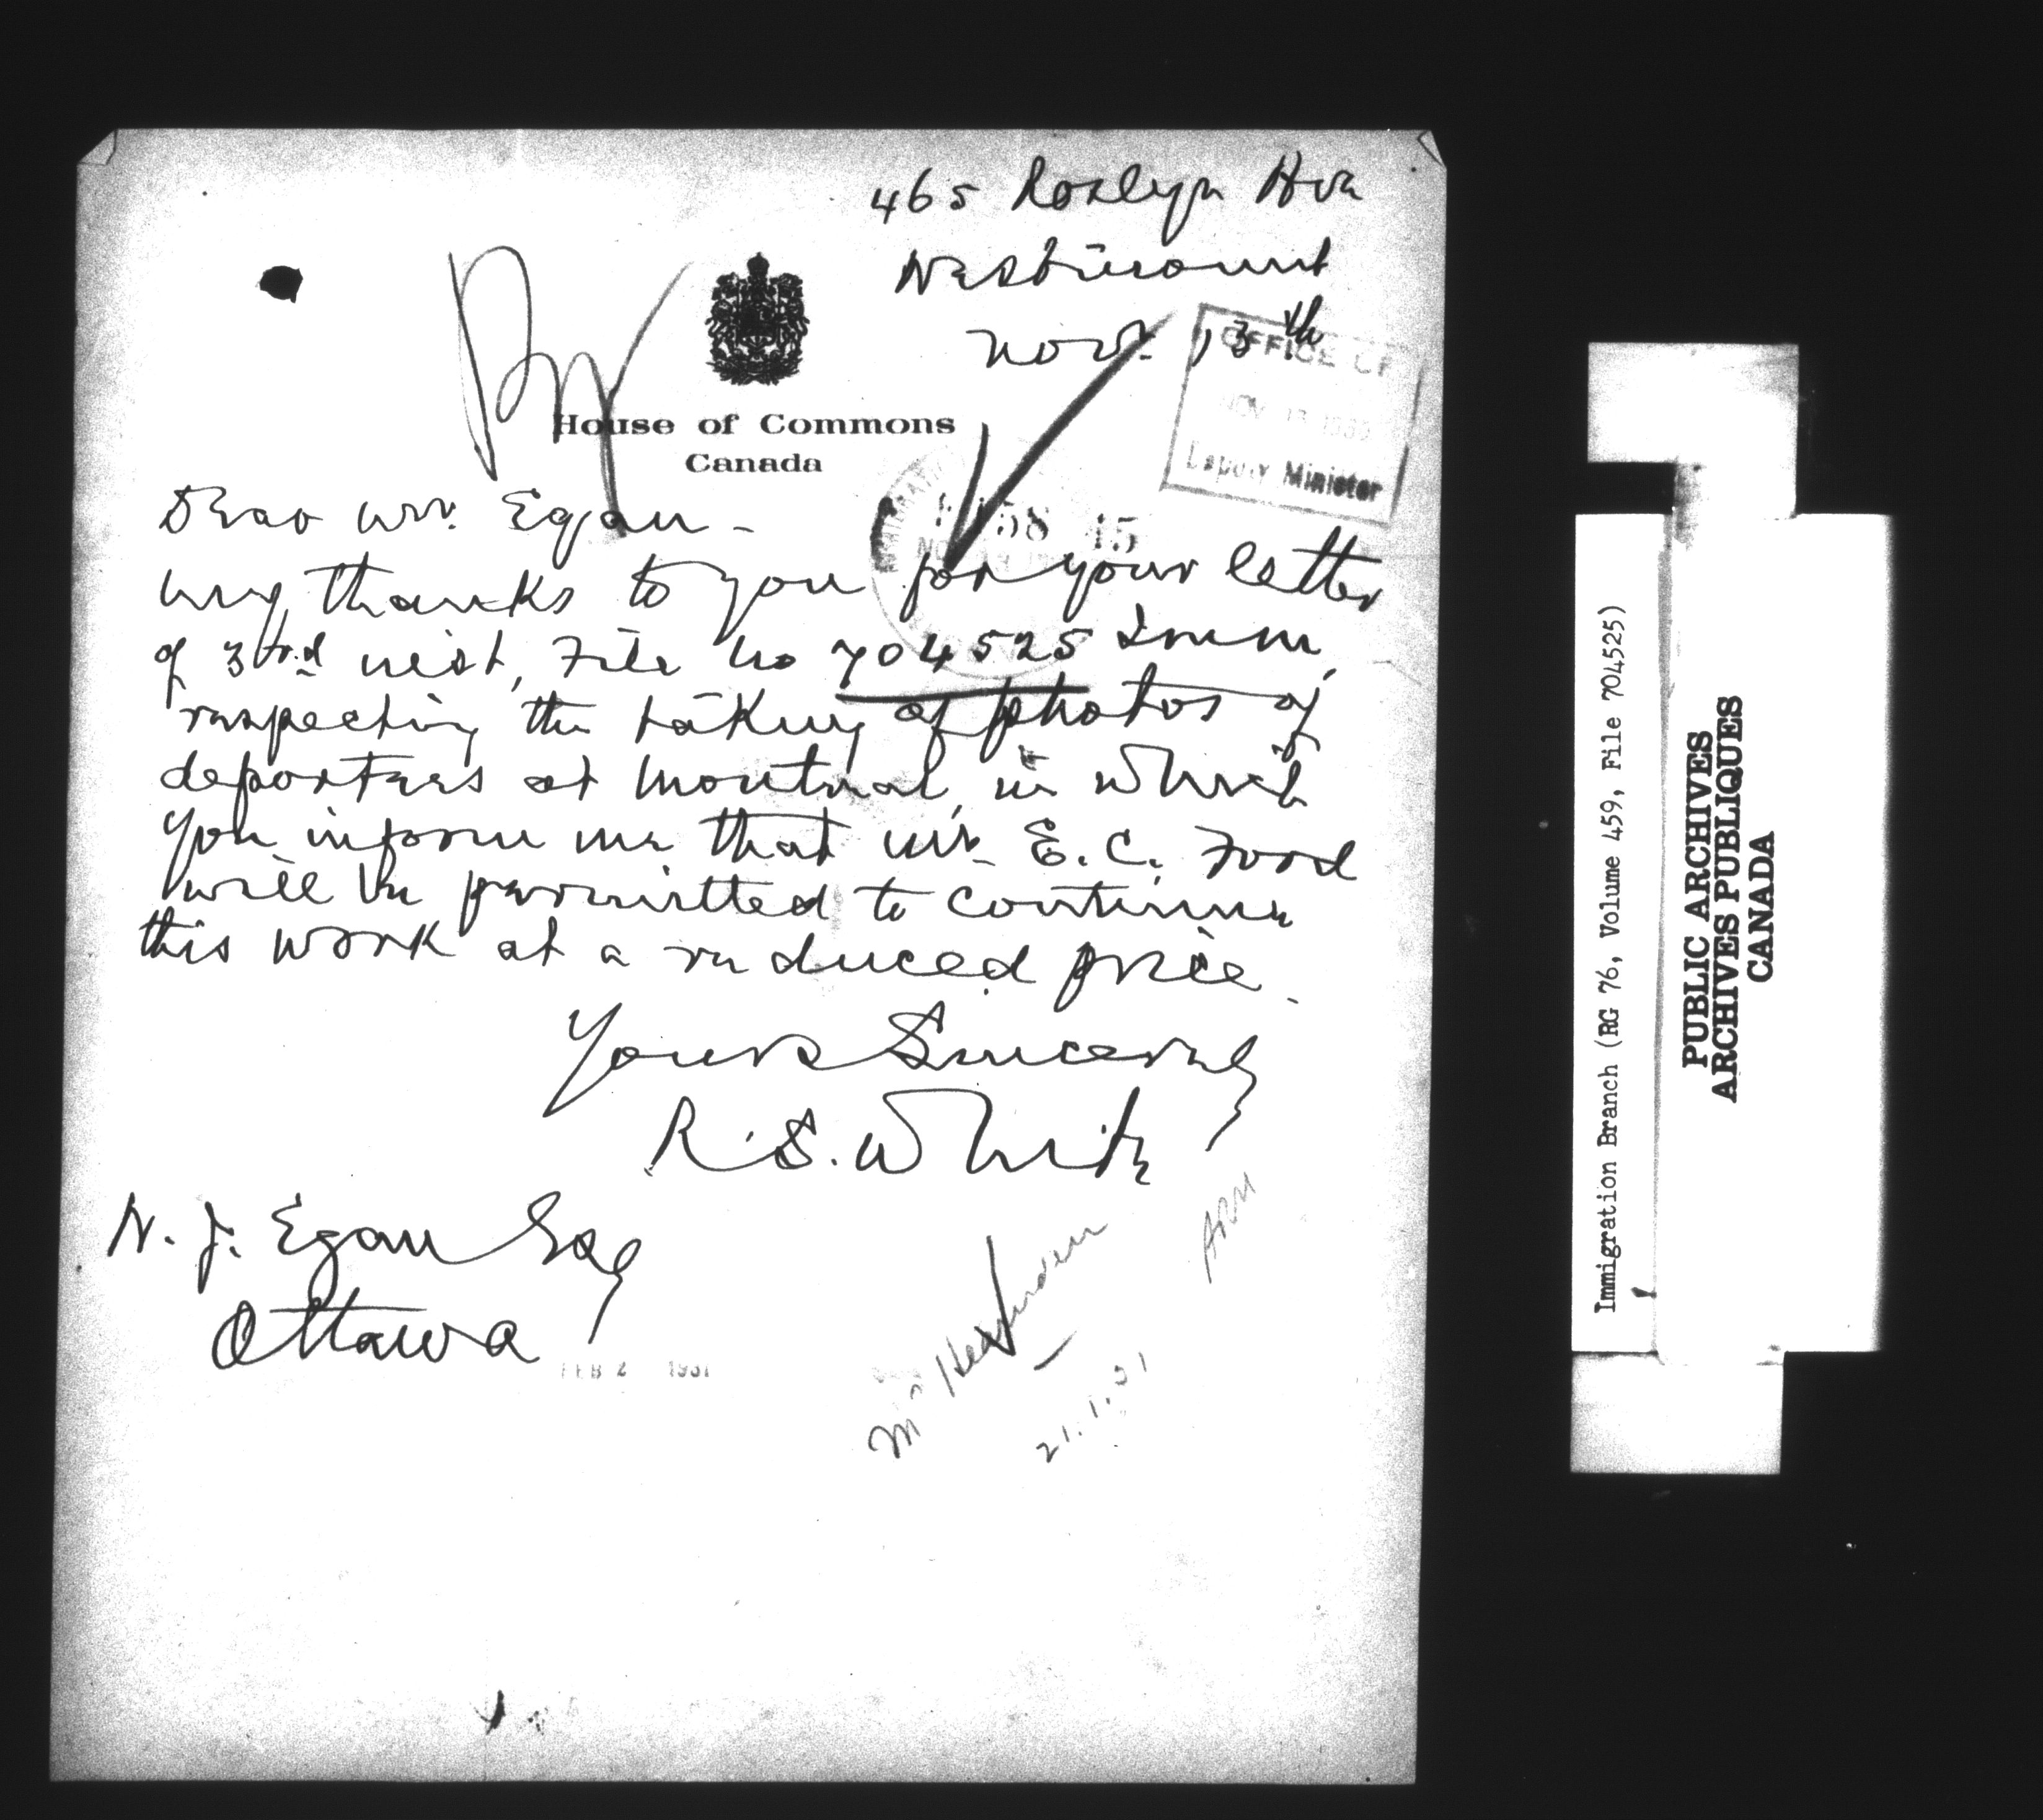 465 Roslyn Ave
Westmount
Nov. 13th
House of Commons
Canada
OFFICE OF
NOV 13 1930
Deputy Minister
Dear Mr. Egan -
my thanks to you for your letter
of 3rd inst, File No 704525 Imm,
respecting the taking of photos of
deportees at Montreal, in which
you inform me that Mr. E. C. Ford
will be permitted to continue
this work at a reduced price.
Yours Sincerely
R. S. White
W. J. Egan Esq
Ottawa
FEB 2 1931
Mr
21.1.31
Immigration Branch (RG 76, Volume 459, File 704525)
PUBLIC ARCHIVES
ARCHIVES PUBLIQUES
CANADA